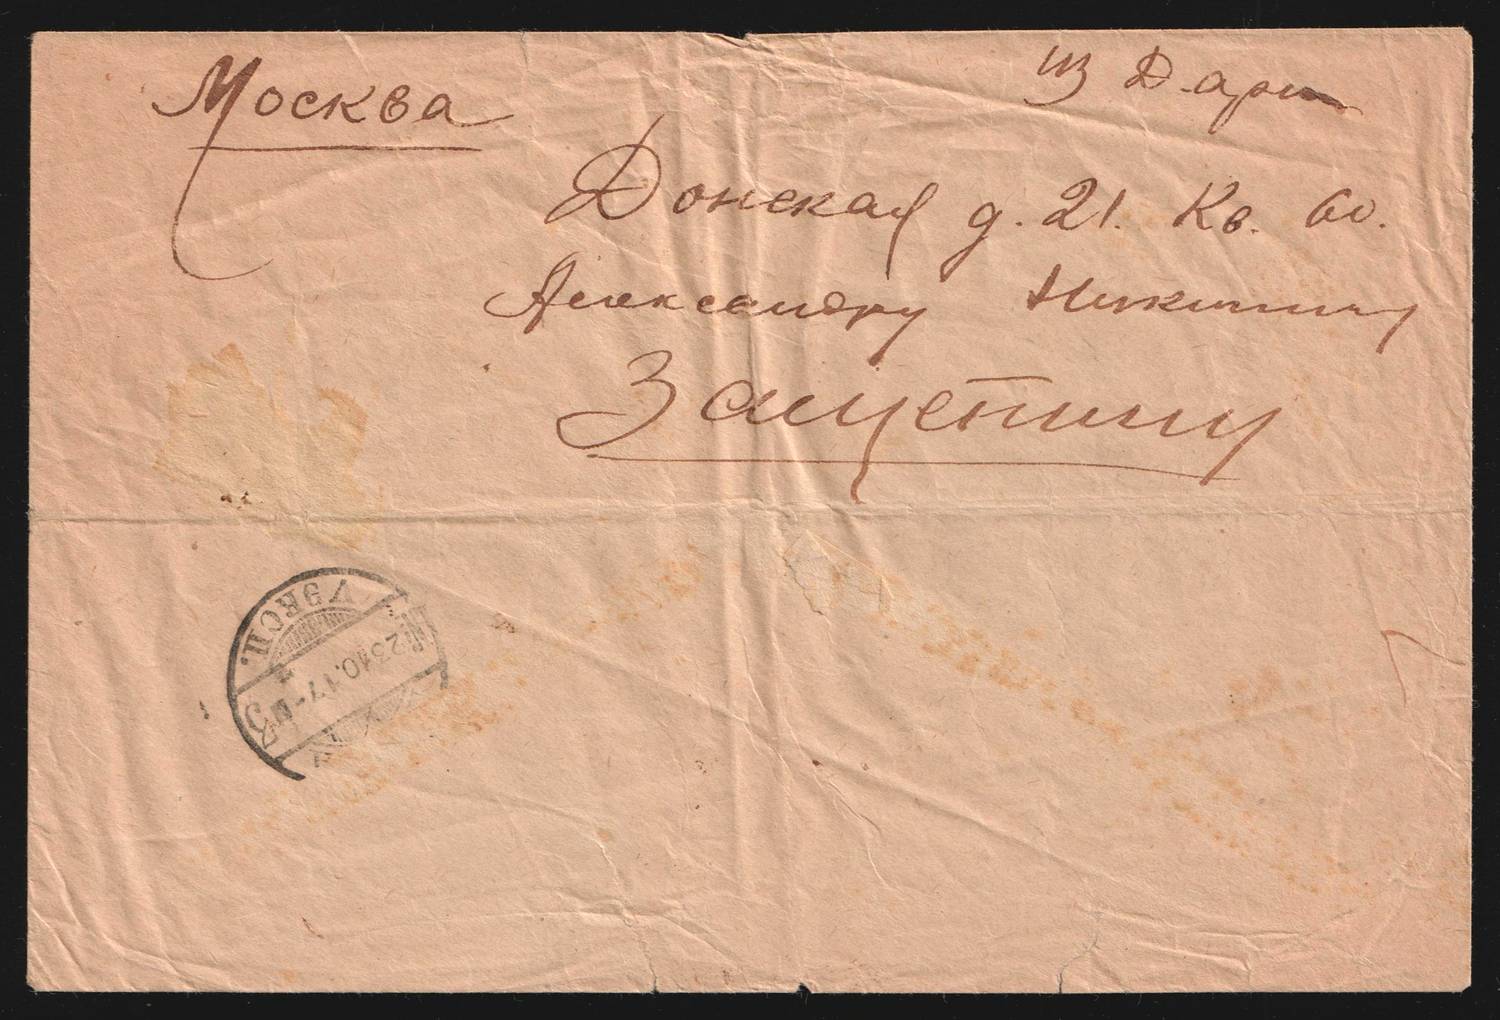 Москва
из Д. ар
Донская д. 21. Кв. 60.
Александру Никитичу
Защепину
V ЭКСП.
23 10.17
3